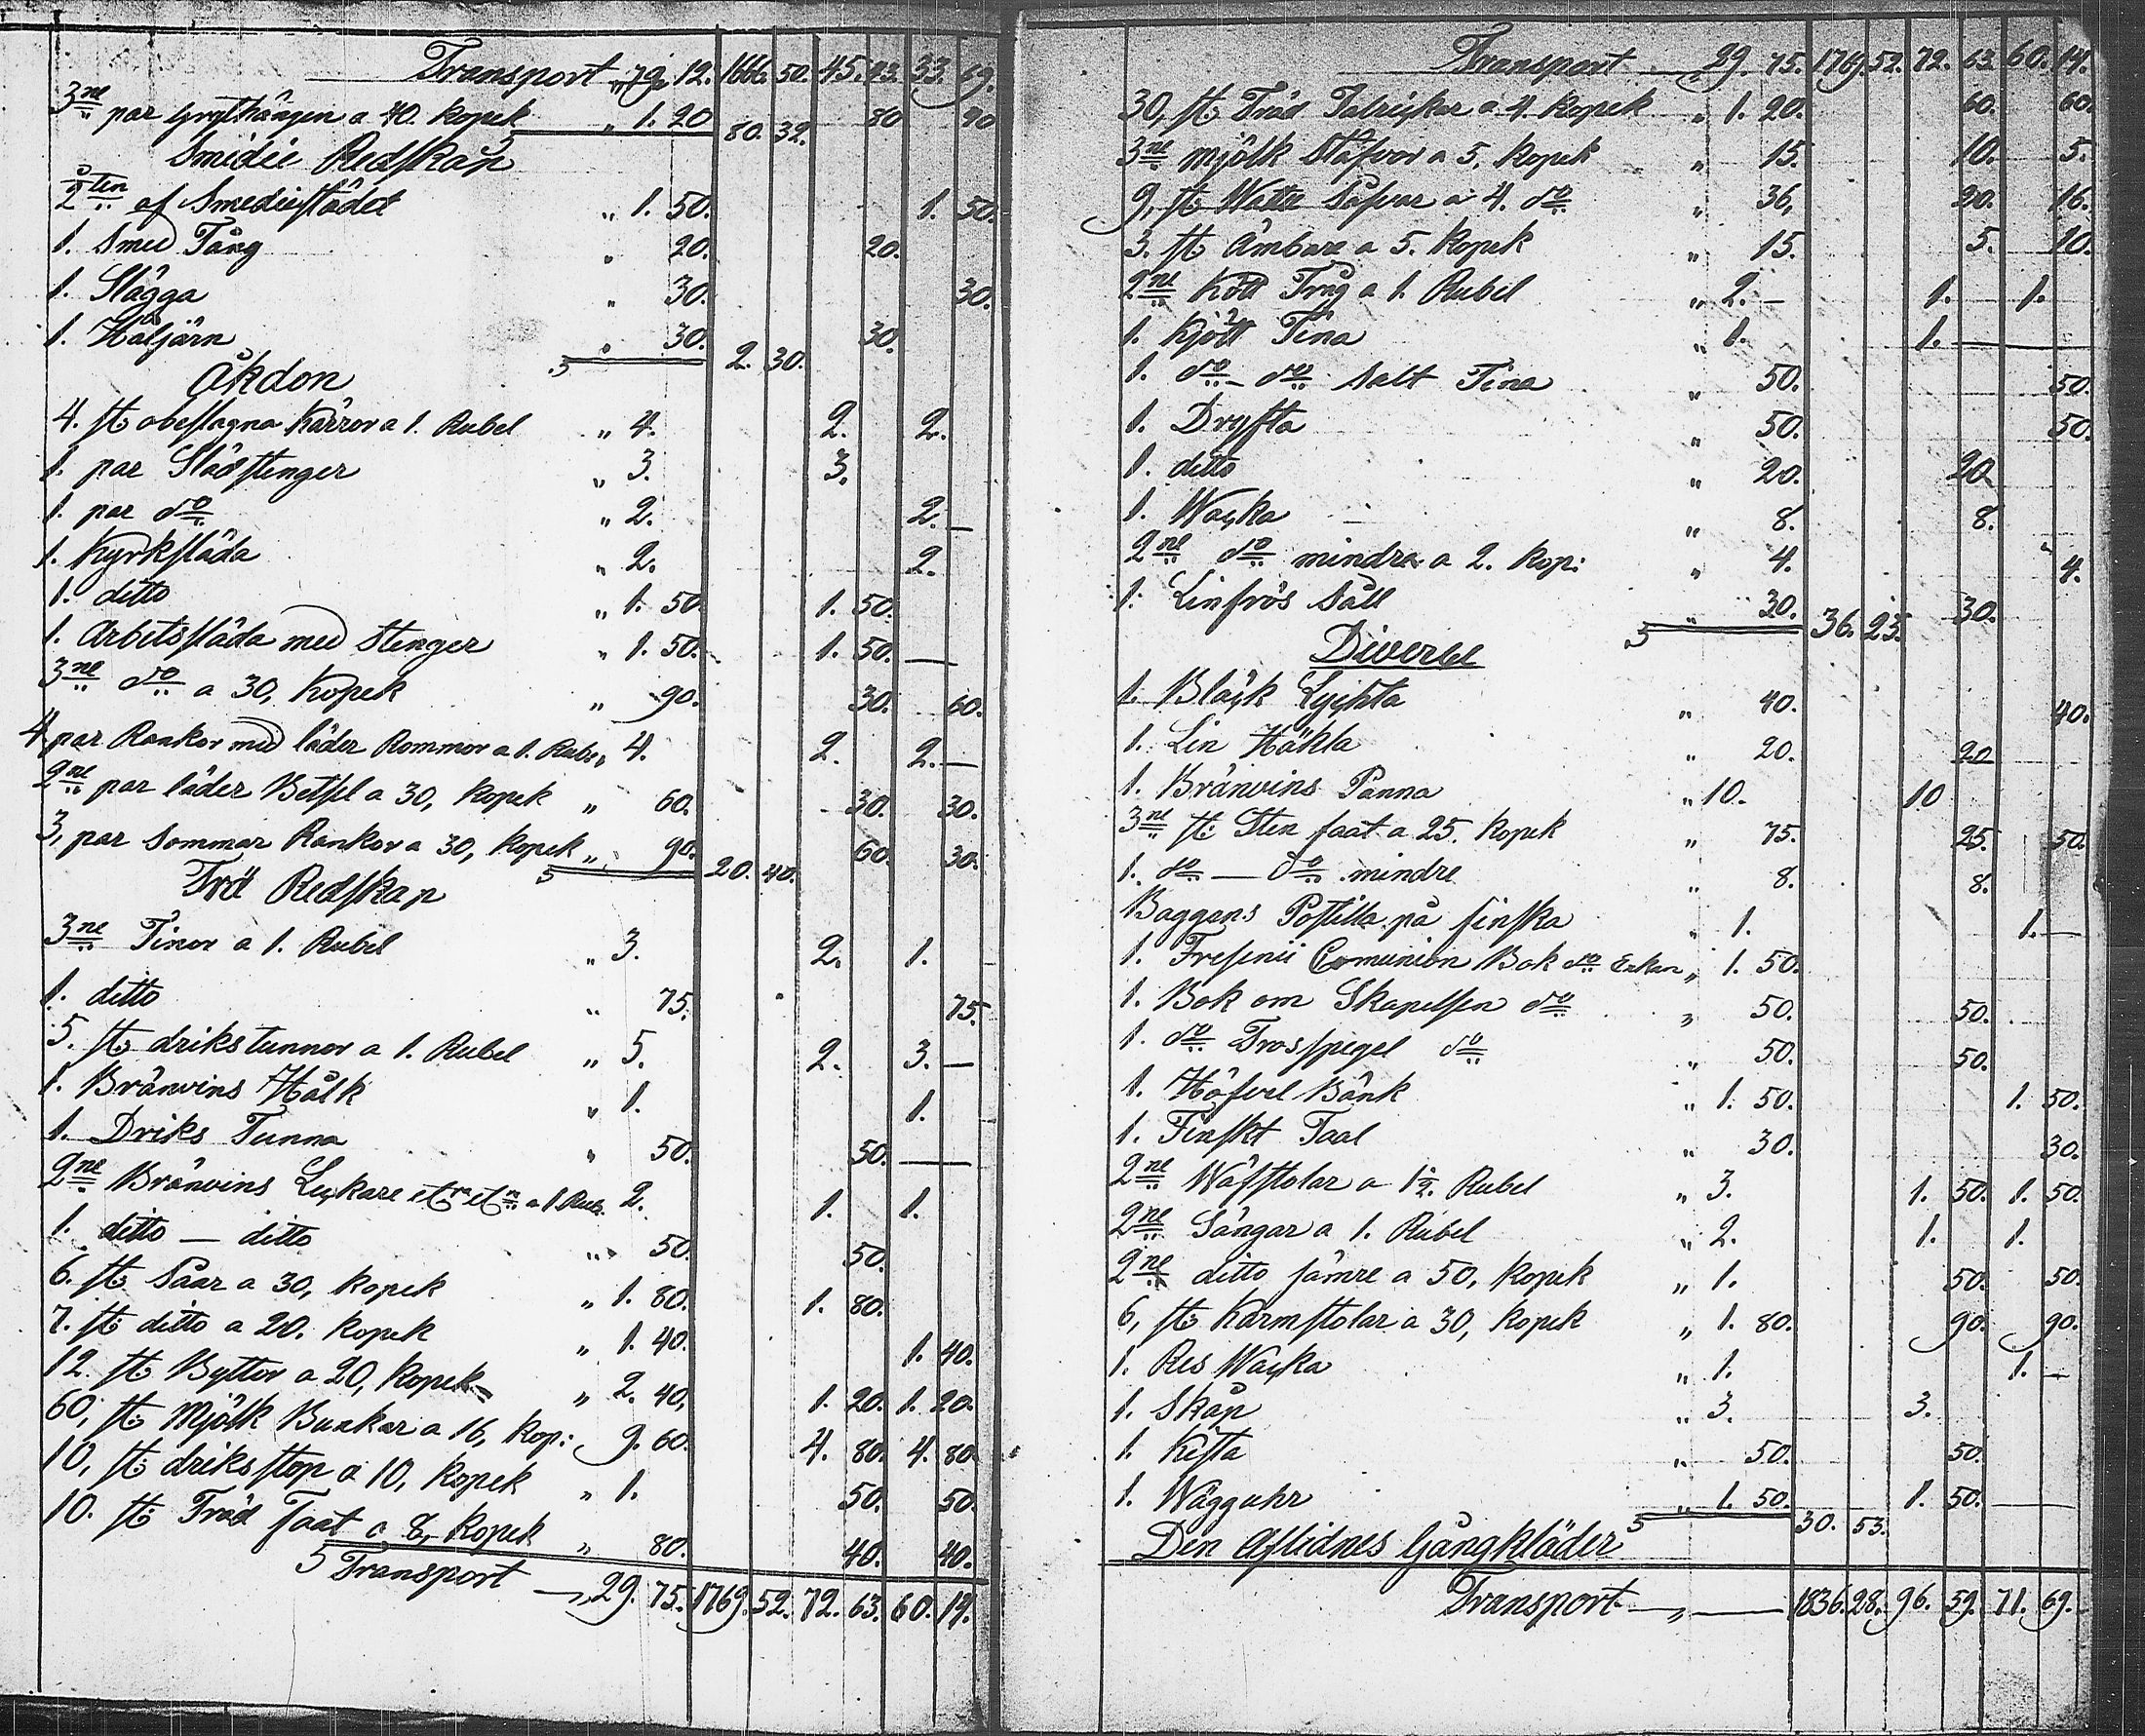 Transport " 79. 12. 1666. 50. 45. 93. 33. 69.
3ne par grythängen a 40. Kopek " 1. 20 80. 32. 80 40
Smidie Redskap
2 ten af Smediestädet " 1. 50. 1. 50.
1. Smed Tång " 20. 20.
1. Slägga " 30. 30.
1. Håljärn " 30. 2. 30. 30.
Åkdon
4. st obeslagna Kärror a 1. Rubel " 4. 2. 2.
1. par Slädstenger " 3. 3.
1. par do " 2. 2. —
1. Kyrksläda " 2. 2.
1. ditto " 1. 50. 1. 50.
1. Arbetssläda med Stenger " 1. 50. 1. 50. —
3ne do a 30, Kopek " 90. 30. 60.
4 par Rankor med läder Rommor a 1. Rub. " 4. 2. 2. —
2ne par läder Betsel a 30, Kopek " 60. 30. 30.
3, par Sommar Rankor a 30, Kopek " 90. 20. 40. 60. 30.
Trä Redskap
3ne Tinor a 1. Rubel " 3. 2. 1.
1. ditto " 75. 75.
5. st drikstunnor a 1. Rubel " 5. 2. 3. —
1. Bränvins Hålk " 1. 1.
1. Driks Tunna " 50. 50. —
2ne Bränvins Leckare etc etc a 1 Rub. 2. 1. 1.
1. ditto — ditto " 50. 50.
6. st Såar a 30, Kopek " 1. 80. 1. 80.
7. st ditto a 20. Kopek " 1. 40. 1. 40.
12. st Byttor a 20, Kopek " 2. 40, 1. 20. 1. 20.
60, st Mjölk Bunkar a 16, Kop: 9. 60. 4. 80. 4. 80.
10, st driksstop a 10, Kopek " 1. 50. 50.
10. st Träd Faat a 8, Kopek " 80. 40. 40.
Transport — " 29. 75. 1769. 52. 72. 63. 60. 14.
Transport " 29. 75. 1769. 52. 72. 63. 60. 14.
30, st Träd Talrickar a 4 Kopek " 1. 20. 60. 60.
3ne Mjölk Stäfvor a 5. Kopek " 15. 10. 5.
9, st Watte Såfvar a 4. do " 36, 20. 16.
3. st Ämbare a 5. Kopek " 15. 5. 10.
2ne Kött Tråg a 1. Rubel " 2. — 1. 1.
1. Kjött Tina " 1. 1. —
1. do — do Salt Tina " 50. 50.
1. Dryfta " 50. 50.
1. ditto " 20. 20.
1. Wacka " 8. 8.
2ne do mindre a 2. Kop: " 4. 4.
1. Linfrös Såll " 30. 36. 23. 30.
Diverse
1. Bläck Lyckta " 40. 40.
1. Lin Häkla " 20. 20
1. Bränvins Panna " 10. 10
3ne st: Sten faat a 25. Kopek " 75. 25. 50.
1. do — do mindre " 8. 8.
Baggens Postilla på finska " 1. 1. —
1. Fresenii Comunion Bok do " 1. 50.
1. Bok om Skapelsen do " 50. 50.
1. do Trosspegel do " 50. 50.
1. Höfvel Bänk " 1. 50. 1. 50.
1. Finskt Taal " 30. 30.
2ne Wäfstolar a 1½. Rubel " 3. 1. 50. 1. 50.
2ne Sängar a 1. Rubel " 2. 1. 1.
2ne ditto sämre a 50, Kopek " 1. 50. 50.
6, st Karmstolar a 30, Kopek " 1. 80. 90. 90.
1. Res Wacka " 1. 1. —
1. Skåp " 3. 3.
1. Kista " 50. 50.
1. Wägguhr " 1. 50. 30. 53. 1. 50. —
Den Aflidnes Gångkläder
Transport — " — 1836. 28. 96. 59. 71. 69.